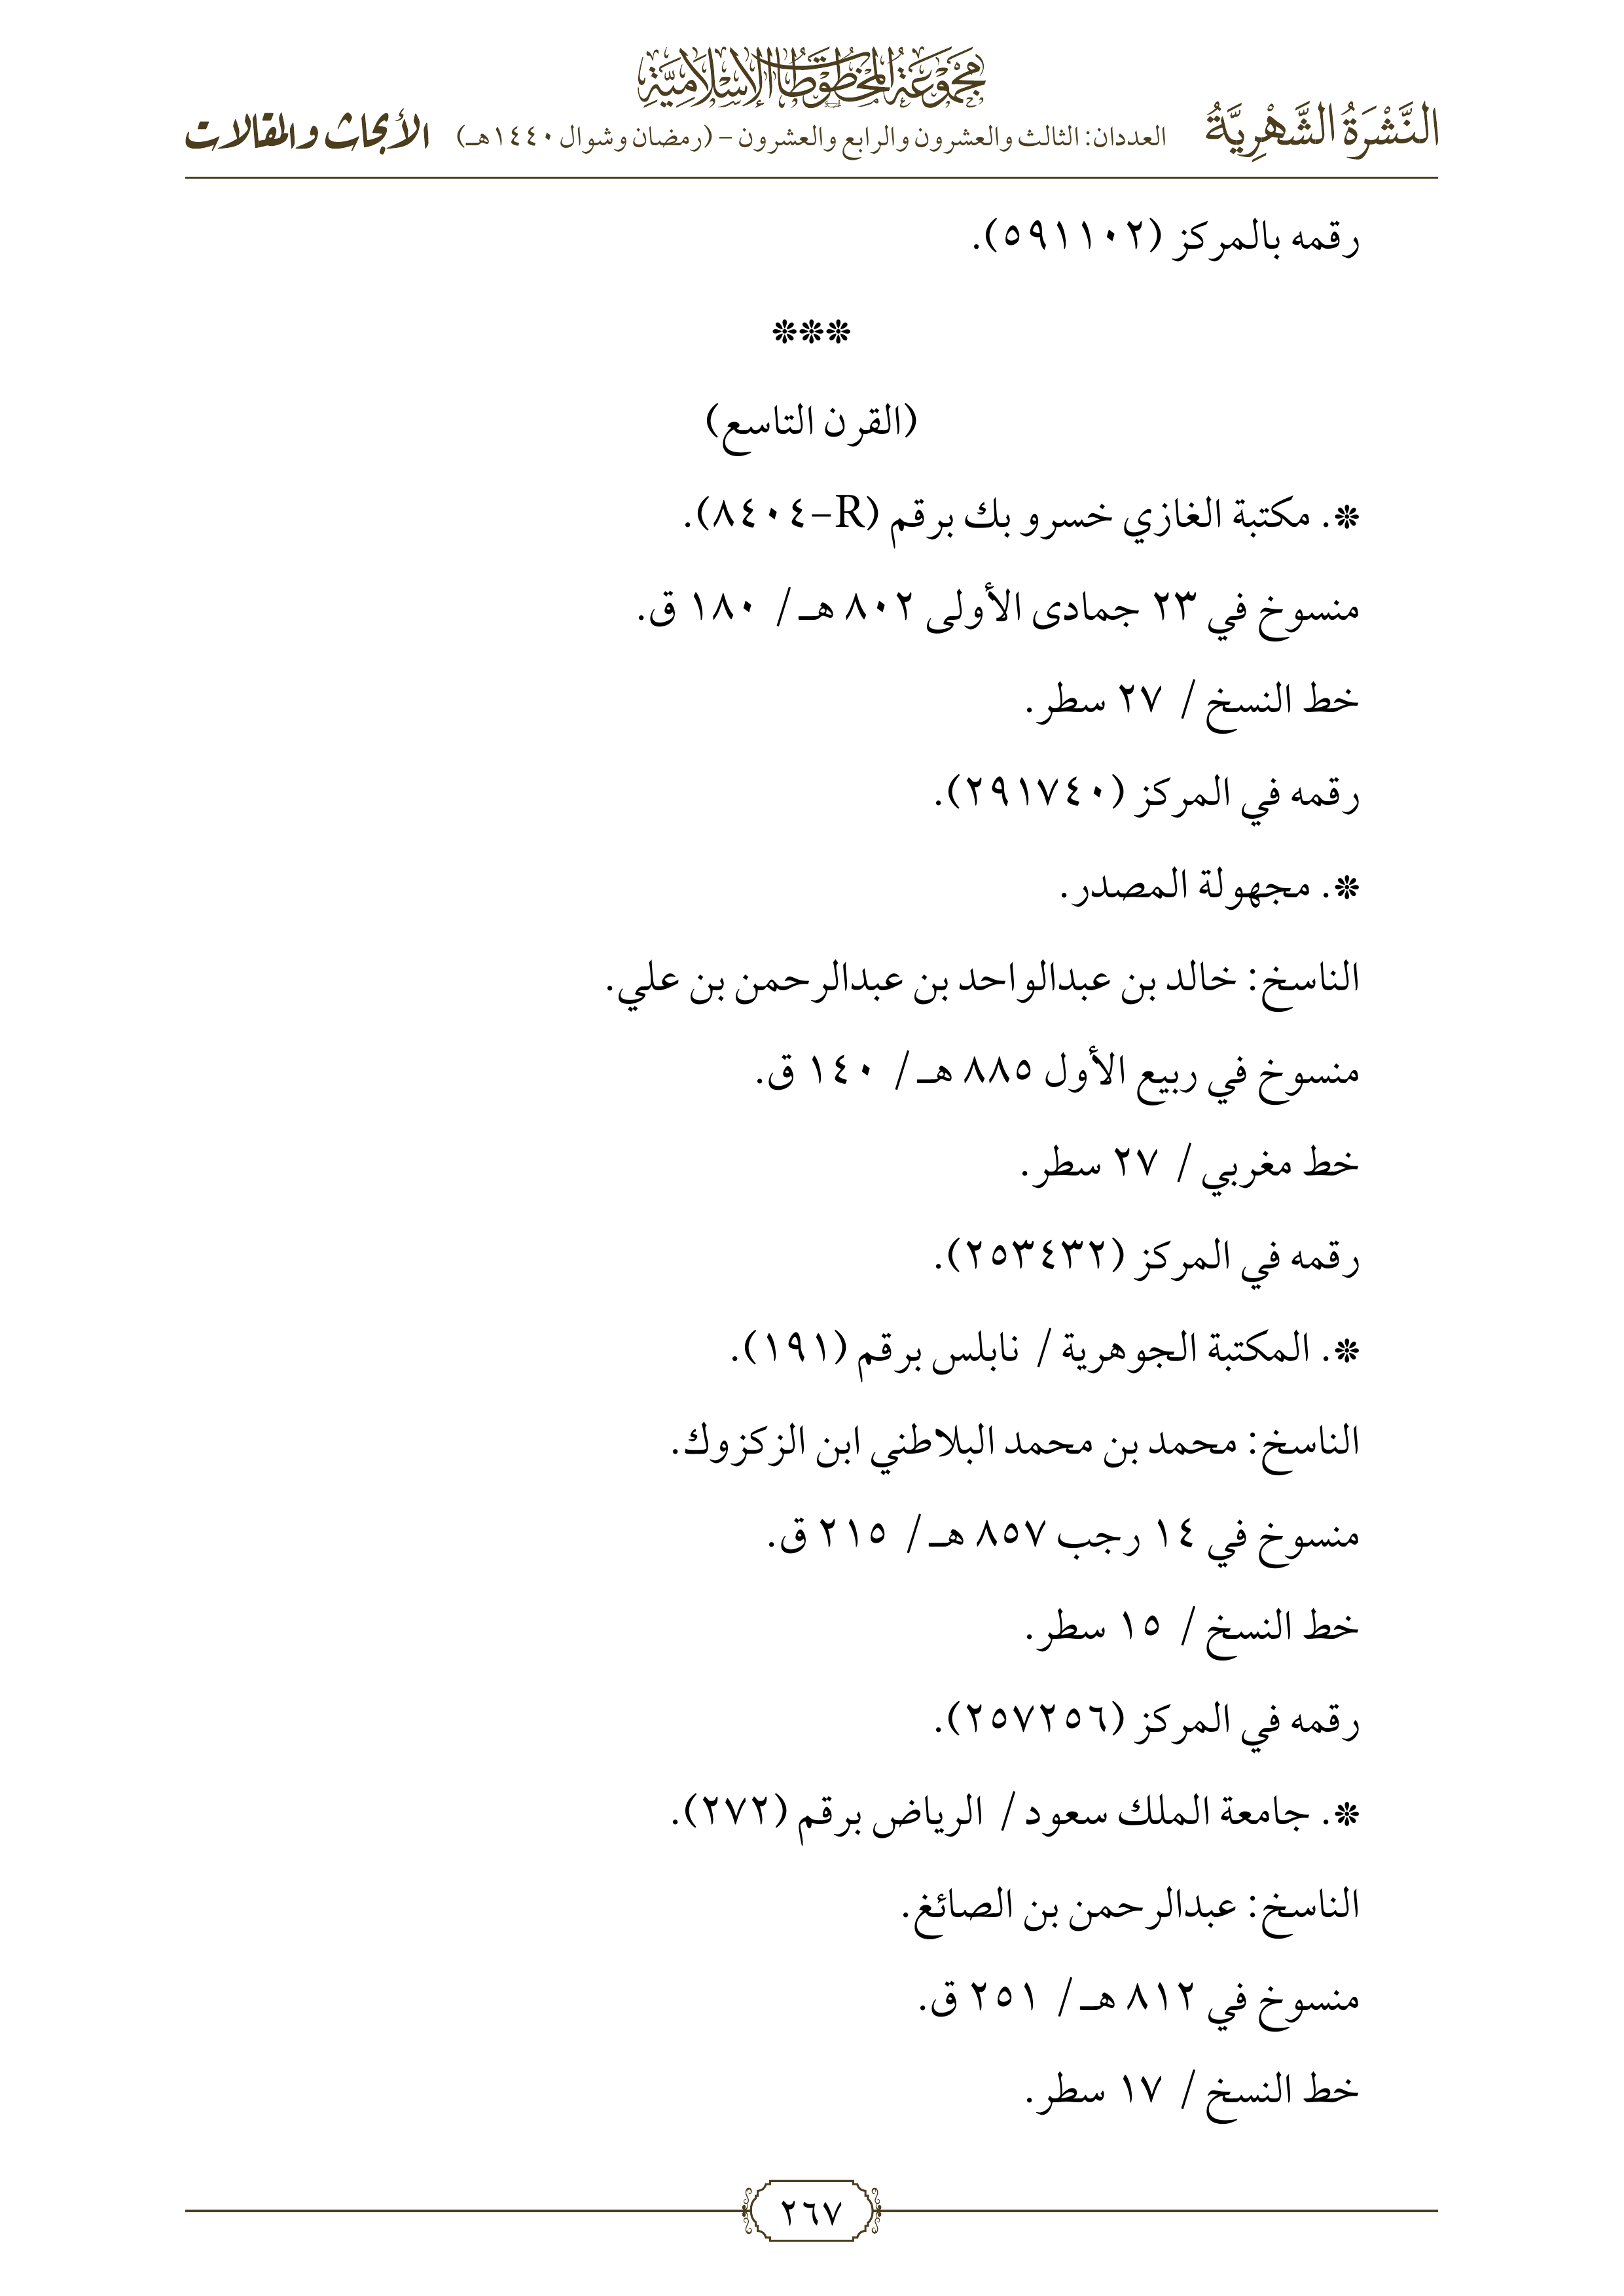 مجموعة المخطوطات الإسلامية
النَّشْرَةُ الشَّهْرِيَّةُ العددان: الثالث والعشرون والرابع والعشرون – (رمضان وشوال ١٤٤٠هـ) الأبحاث والمقالات
رقمه بالمركز (٥٩١١٠٢).
❊❊❊
(القرن التاسع)
❊. مكتبة الغازي خسرو بك برقم (R-٨٤٠٤).
منسوخ في ٢٣ جمادى الأولى ٨٠٢ هـ/ ١٨٠ ق.
خط النسخ/ ٢٧ سطر.
رقمه في المركز (٢٩١٧٤٠).
❊. مجهولة المصدر.
الناسخ: خالد بن عبدالواحد بن عبدالرحمن بن علي.
منسوخ في ربيع الأول ٨٨٥ هـ/ ١٤٠ ق.
خط مغربي/ ٢٧ سطر.
رقمه في المركز (٢٥٣٤٣٢).
❊. المكتبة الجوهرية/ نابلس برقم (١٩١).
الناسخ: محمد بن محمد البلاطني ابن الزكزوك.
منسوخ في ١٤ رجب ٨٥٧ هـ/ ٢١٥ ق.
خط النسخ/ ١٥ سطر.
رقمه في المركز (٢٥٧٢٥٦).
❊. جامعة الملك سعود/ الرياض برقم (٢٧٢).
الناسخ: عبدالرحمن بن الصائغ.
منسوخ في ٨١٢ هـ/ ٢٥١ ق.
خط النسخ/ ١٧ سطر.
٢٦٧